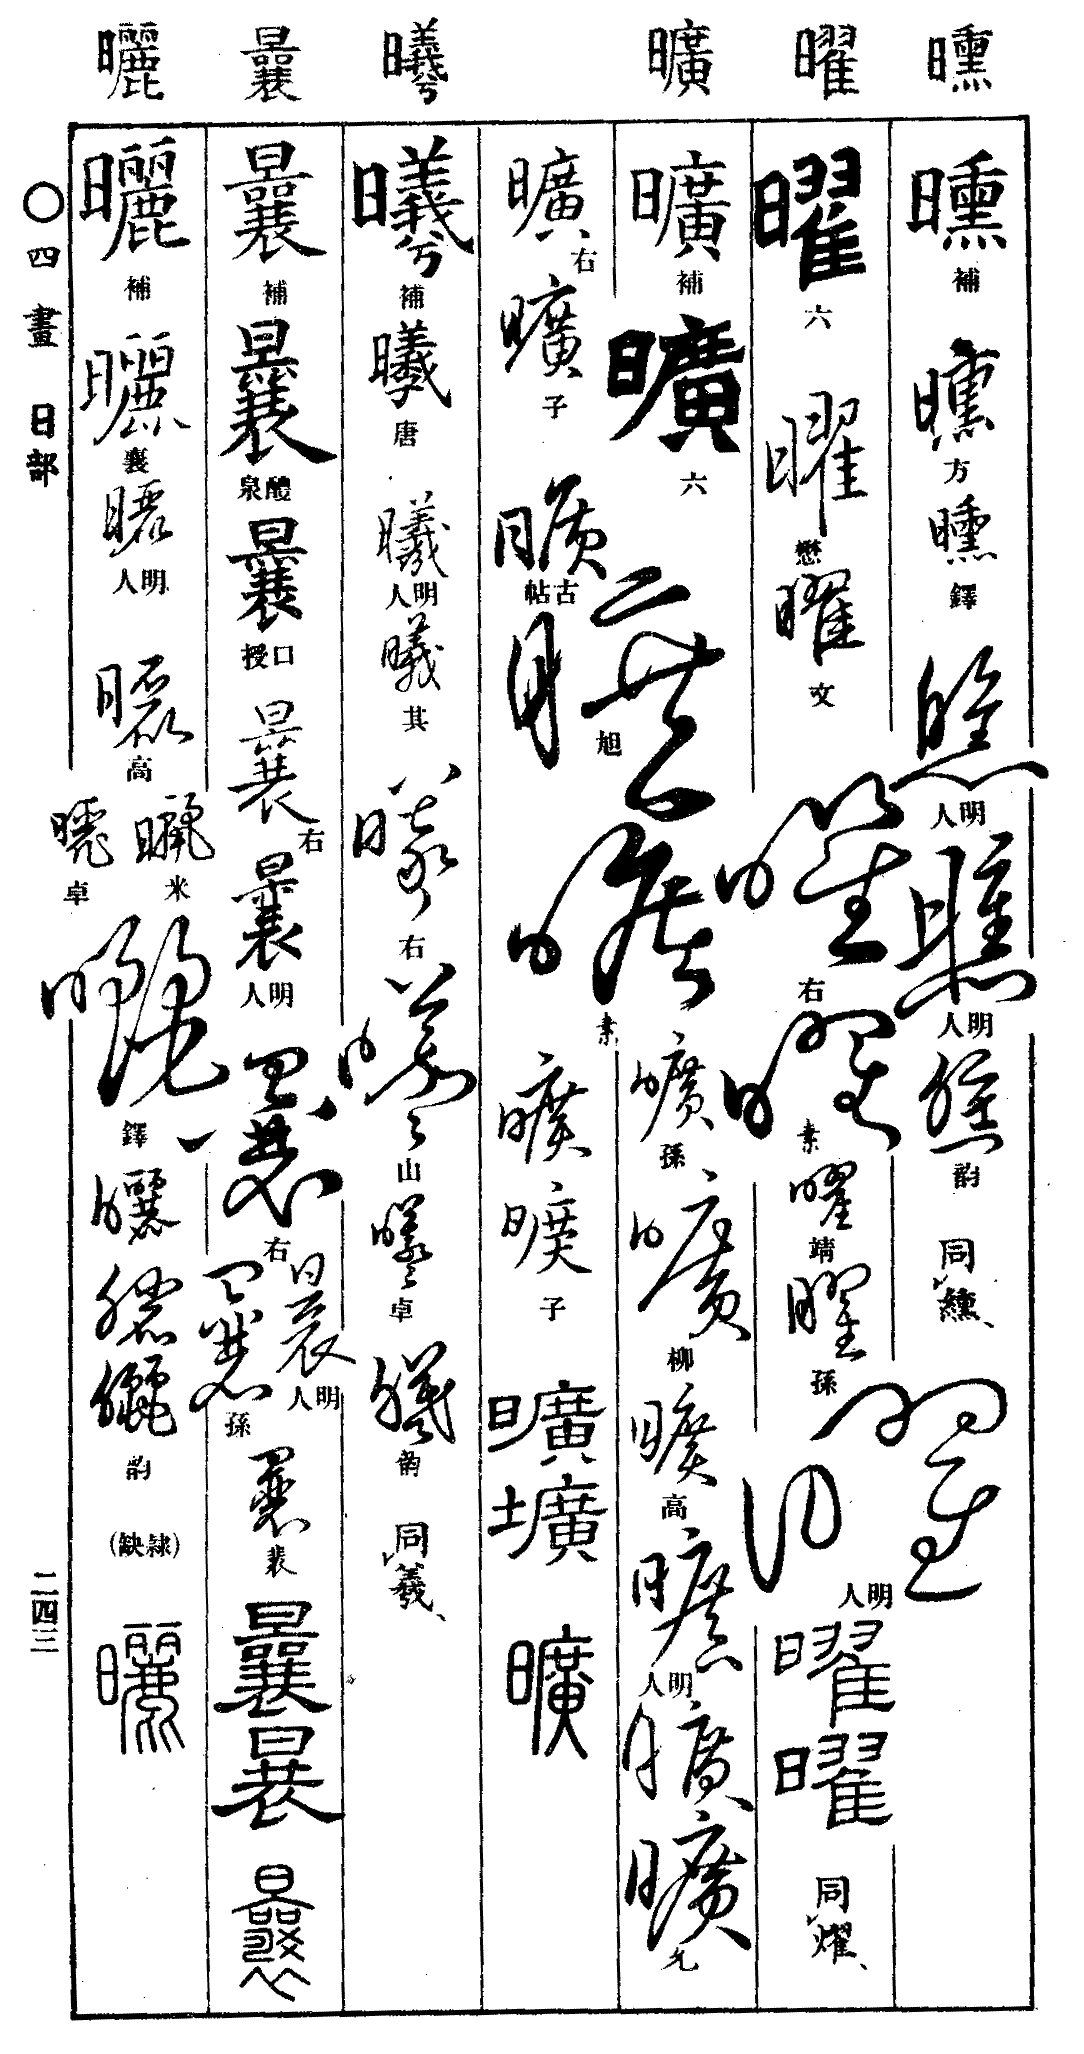 曛 曜 曠 曦 曩 曬
曛 補
曛 方
曛 鐸
曛 明人
曛 明人
曛 韵
同纁、
曜 六
曜 懋
曜 文
曜 右
曜 素
曜 靖
曜 孫
曜 明人
曜
曜
同燿、
曠 補
曠 六
曠 旭
曠 素
曠 孫
曠 柳
曠 高
曠 明人
曠
曠 允
曠 右
曠 子
曠 古帖
曠
曠 子
曠
壙
曠
曦 補
曦 唐
曦 明人
曦 其
曦 右
曦 山
曦 卓
曦 韵
同羲、
曩 補
曩 醴泉
曩 口授
曩 右
曩 明人
曩 右
曩 明人
曩 孫
曩 裴
曩
曩
曩
曬 補
曬 襄
曬 明人
曬 高
曬 米
曬 卓
曬 鐸
曬
曬
曬 韵
(隸缺)
曬
〇四畫 日部
二四三